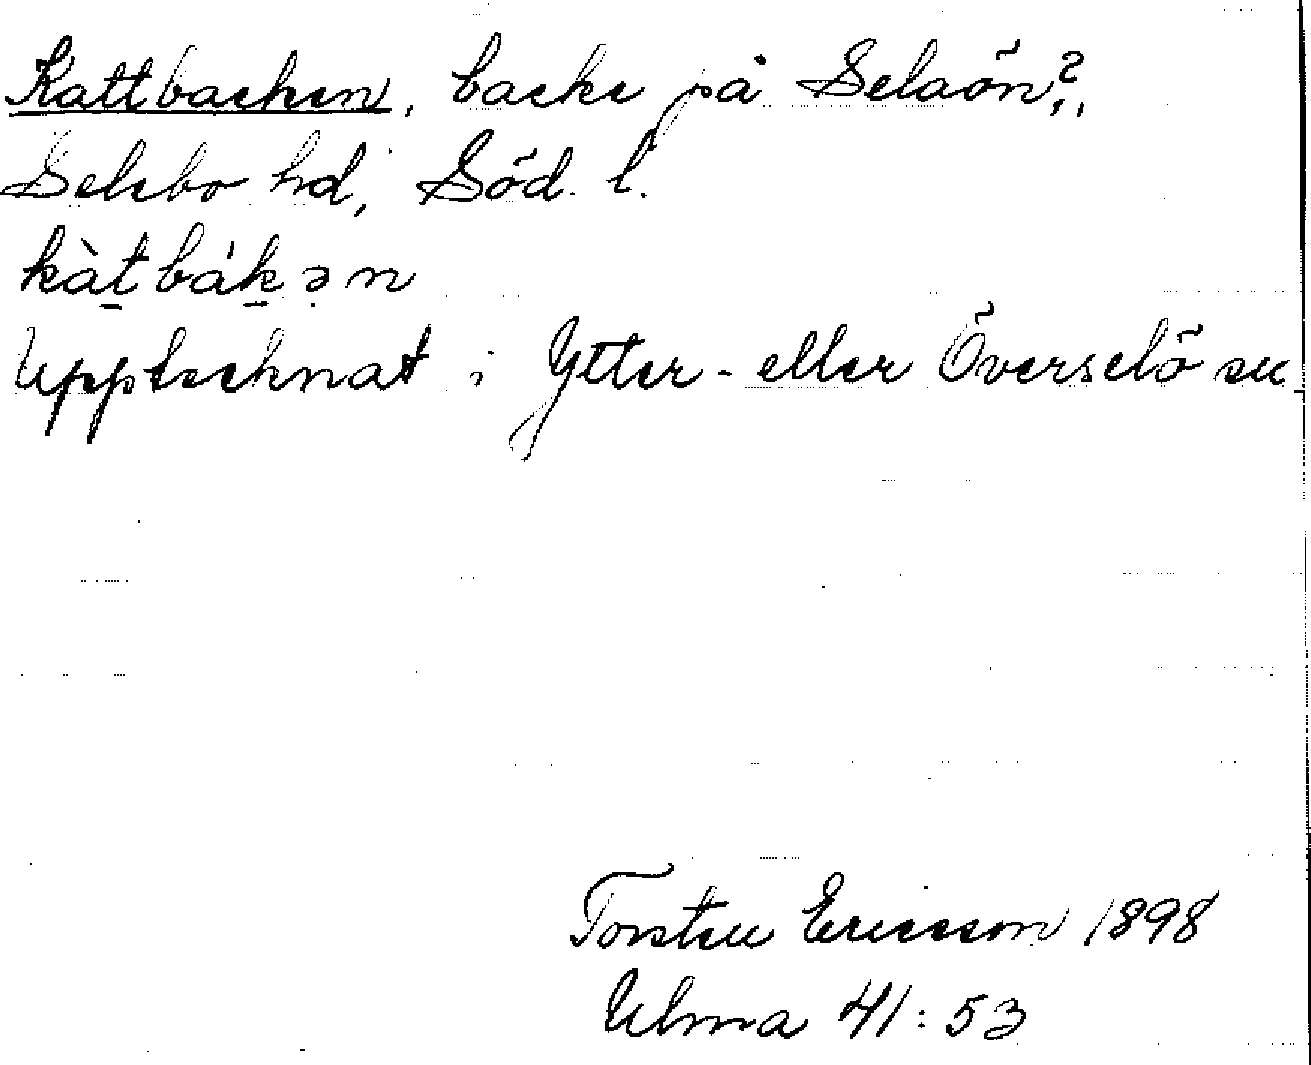 Kattbacken, backe på Selaön?,
Selebo hd, Söd. l.
kàt̠bák̠ə̣n
Upptecknat i Ytter- eller Överselö sn
Torsten Ericsson 1898
Ulma 41:53